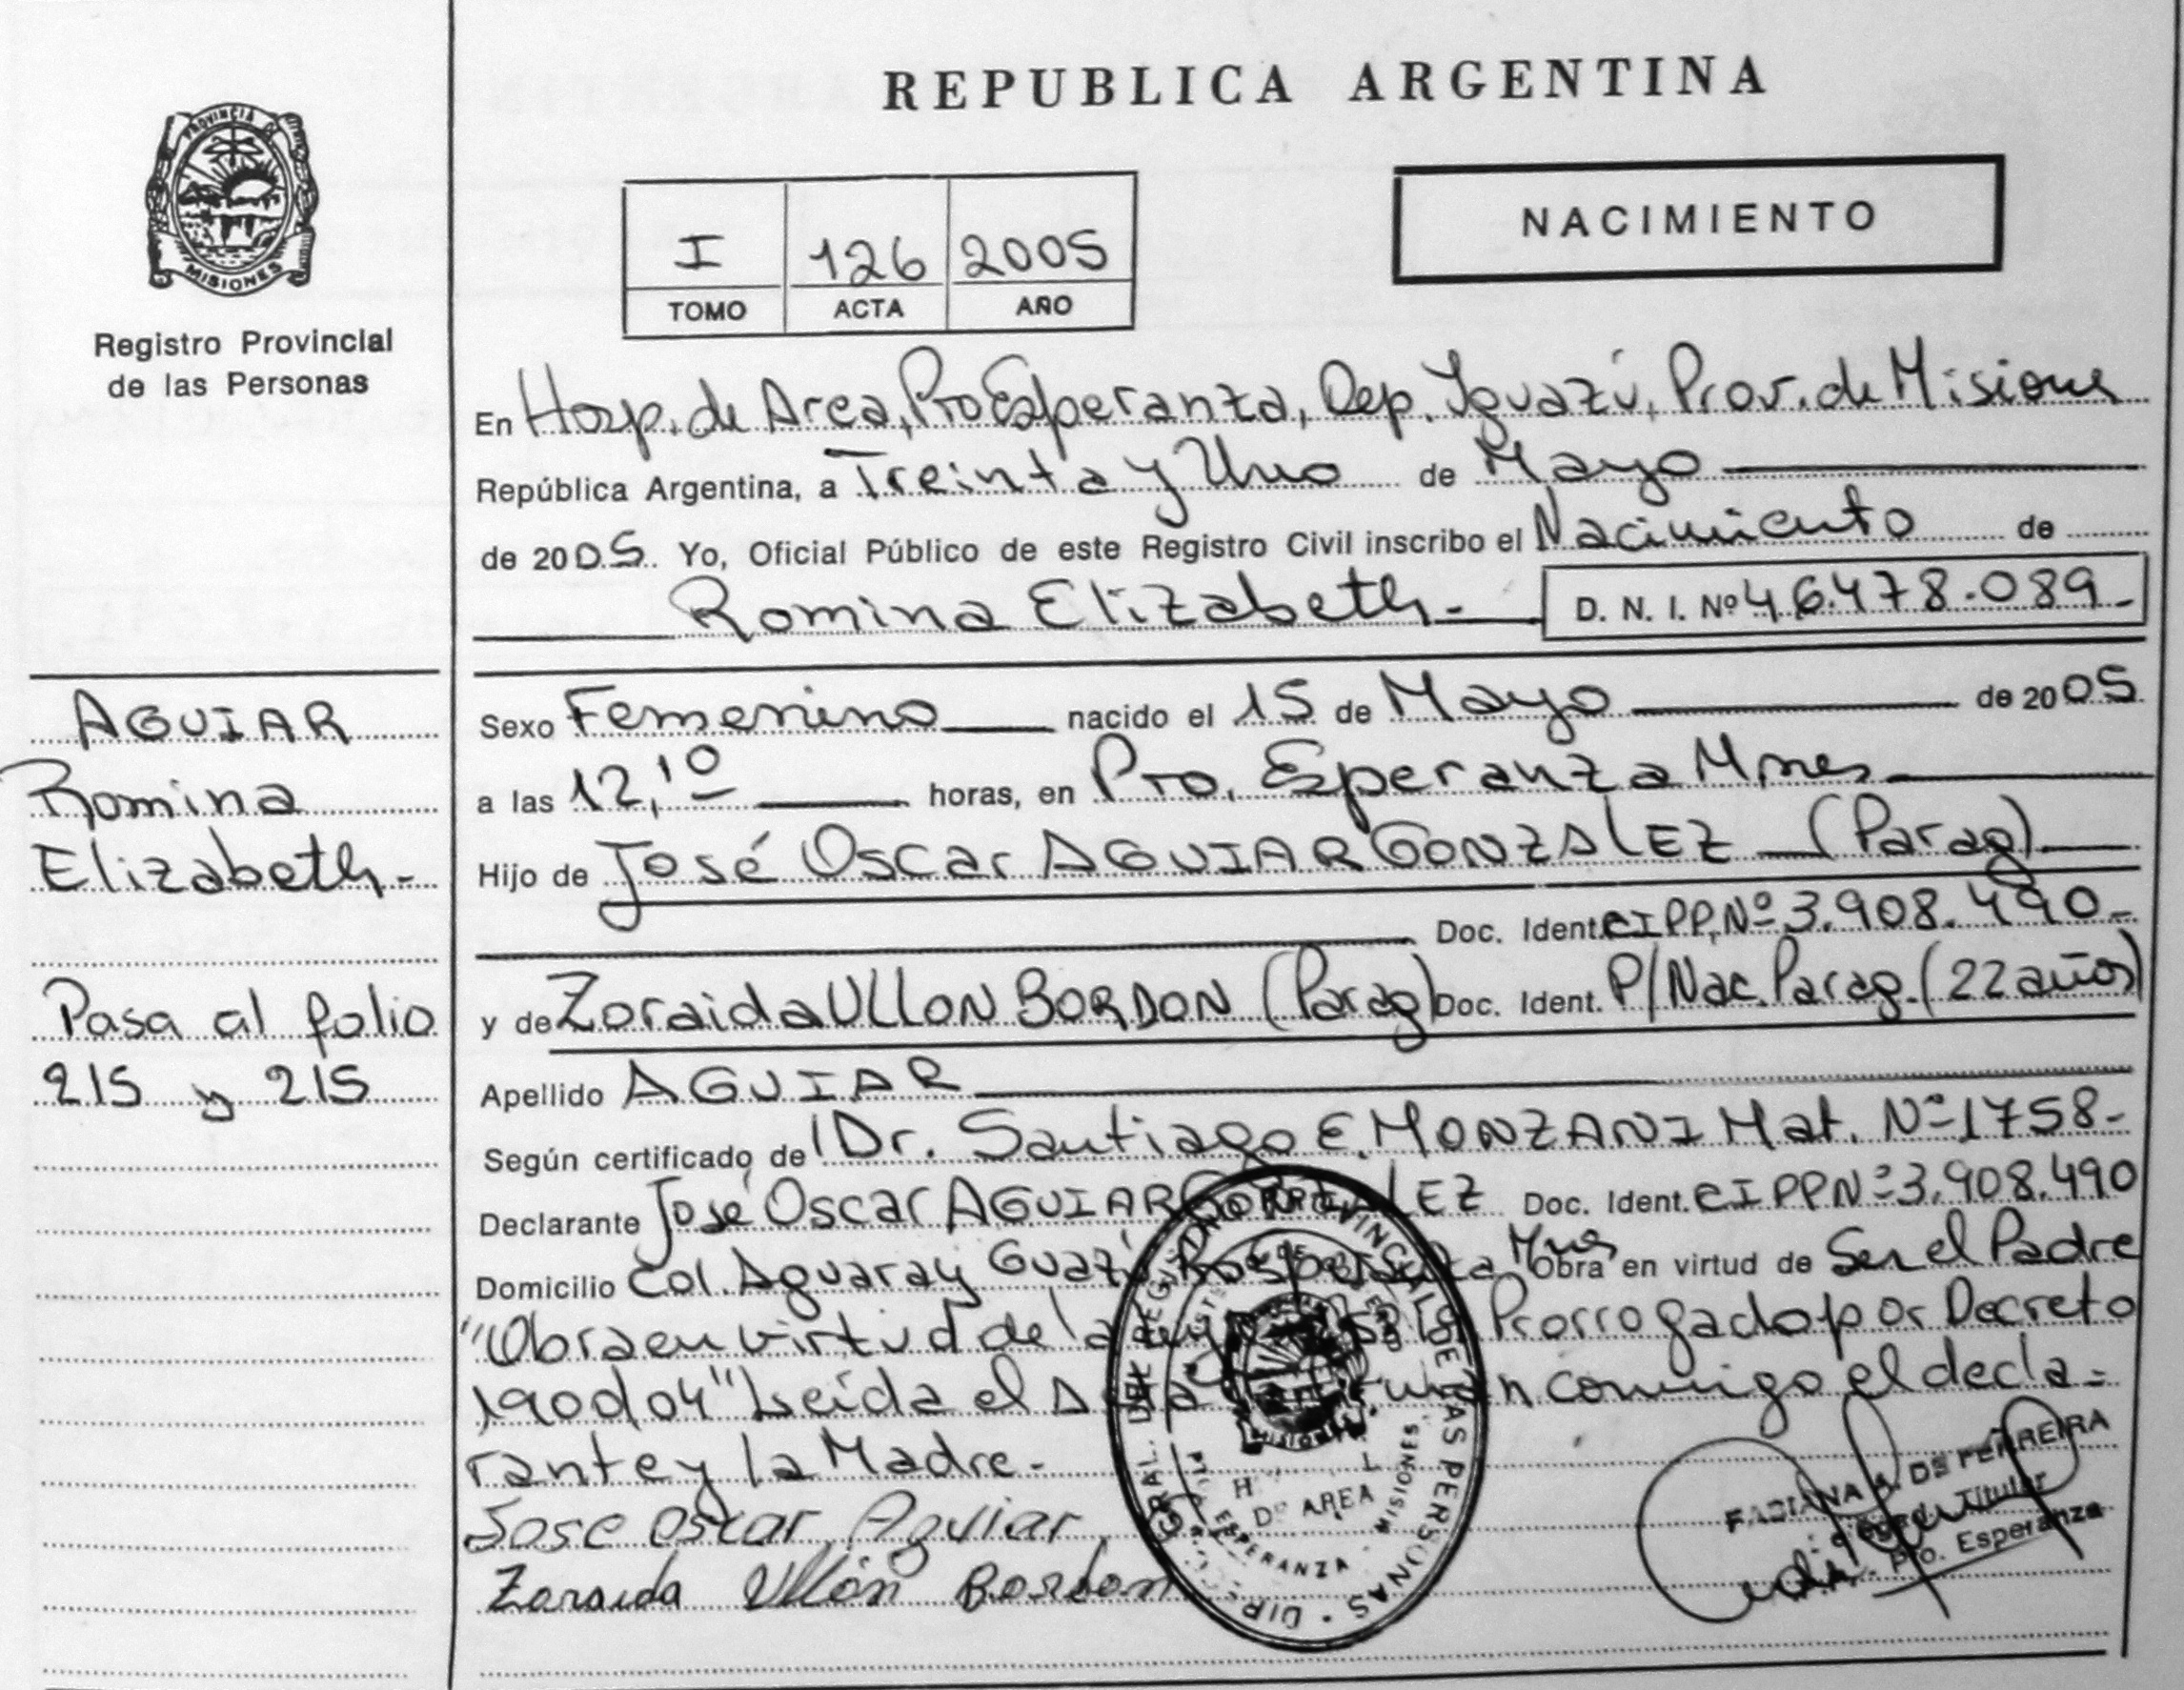 REPUBLICA ARGENTINA
PROVINCIA DE
MISIONES
Registro Provincial
de las Personas
I 126 2005
TOMO ACTA AÑO
NACIMIENTO
En Hosp. de Area, Pto Esperanza, Dep. Iguazú, Prov. de Misiones
República Argentina, a Treinta y Uno de Mayo
de 2005. Yo, Oficial Público de este Registro Civil inscribo el Nacimiento de
Romina Elizabeth.- D. N. I. Nº 46.478.089-
AGUIAR
Romina
Elizabeth.-
Pasa al folio
215 y 215
Sexo Femenino nacido el 15 de Mayo de 2005
a las 12,10 horas, en Pto. Esperanza Mnes
Hijo de José Oscar AGUIAR GONZALEZ (Parag)
Doc. Ident. CIPP, Nº 3.908.490-
y de Zoraida ULLON BORDON (Parag) Doc. Ident. P/Nac. Parag. (22 años)
Apellido AGUIAR
Según certificado de Dr. Santiago E. MONZANI Mat. Nº 1758-
Declarante José Oscar AGUIAR GONZALEZ Doc. Ident. CIPP Nº 3.908.490
Domicilio Col. Aguaray Guazú Pto Esperanza Mnes Obra en virtud de Ser el Padre
"Obra en virtud de la Ley Prorrogado por Decreto
190d/04" Leida el Acta firman conmigo el decla=
rante y la Madre.-
Jose oscar Aguiar
Zoraida Ullón Bordon
DE LAS PERSONAS
DE AREA
ESPERANZA - MISIONES
FABIANA A. DE FERREIRA
Titular
Pto. Esperanza